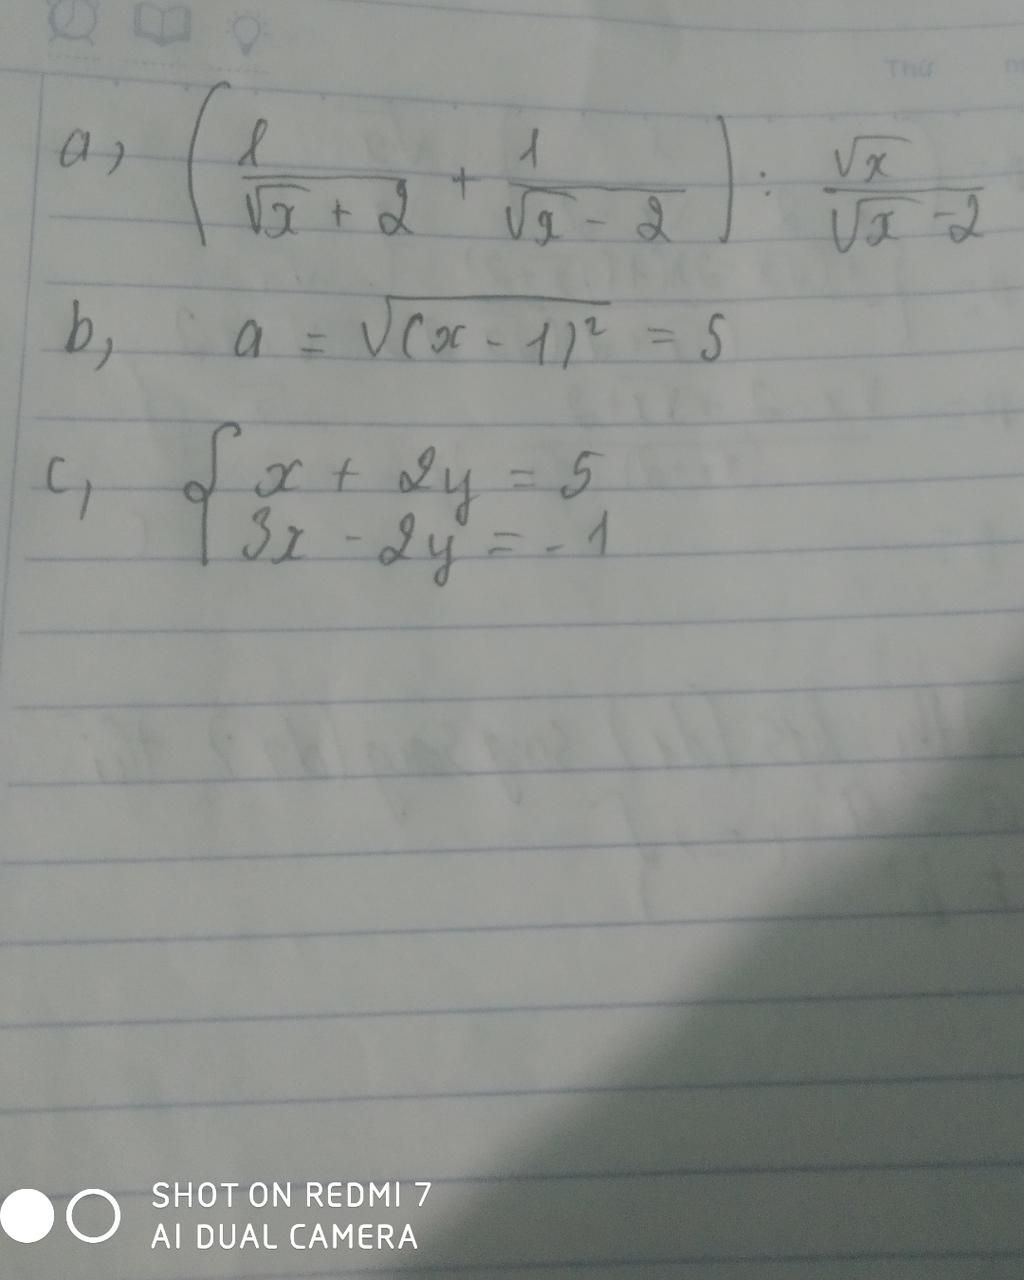 Thứ
a, ( 1/(√x + 2) + 1/(√x - 2) ) : √x/(√x - 2)
b, a = √(x - 1)² = 5
c, { x + 2y = 5
3x - 2y = -1
SHOT ON REDMI 7
AI DUAL CAMERA